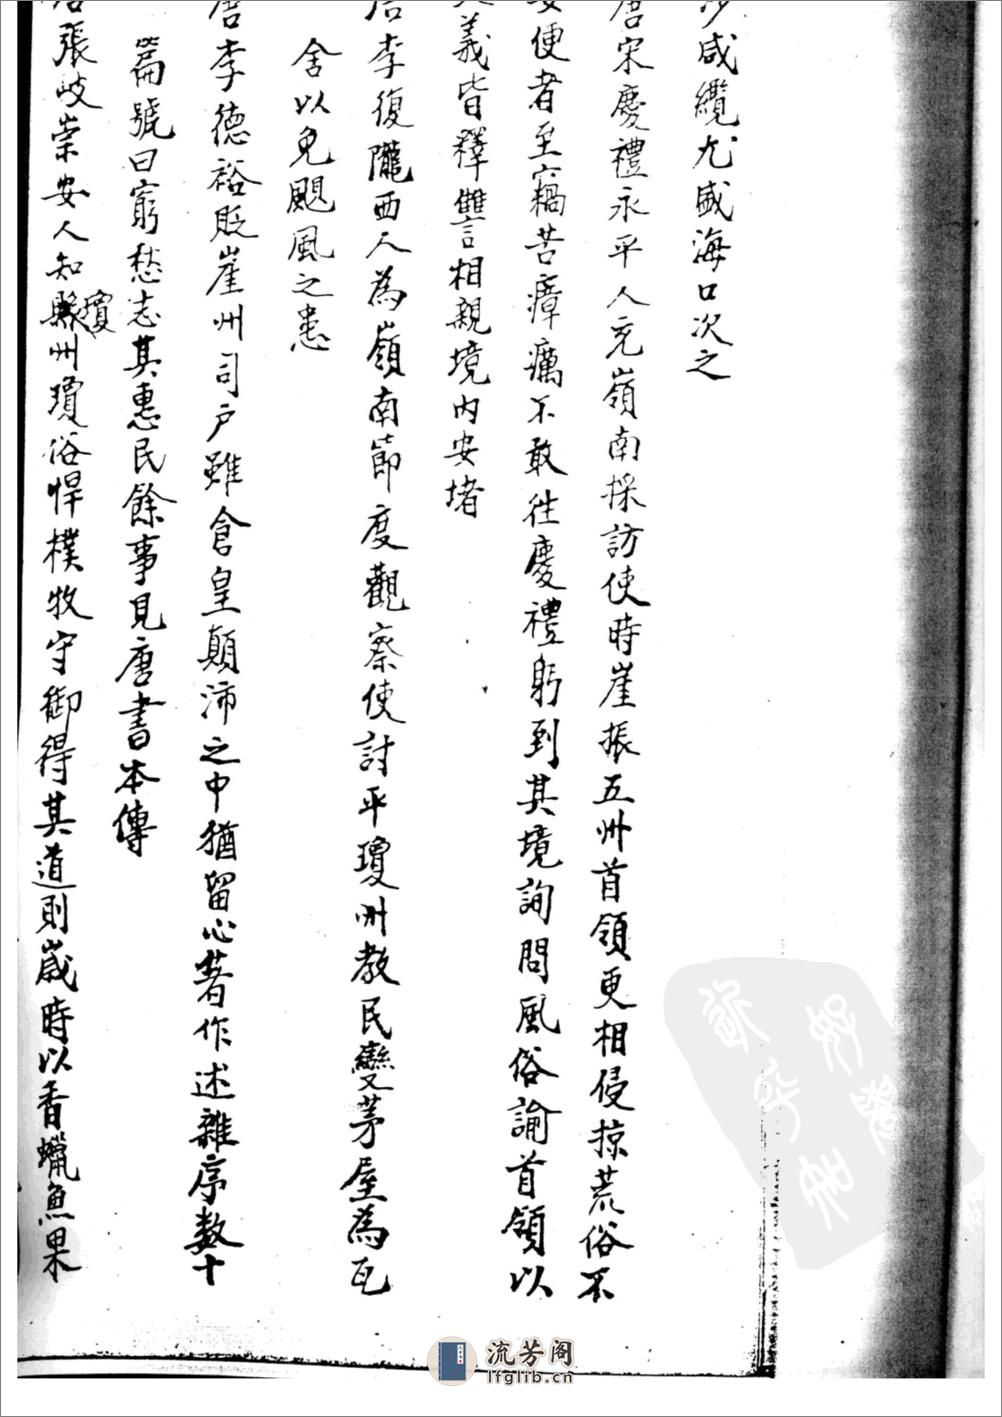 沙咸纜尤盛海口次之
唐宋慶禮永平人充嶺南採訪使時崖振五州首領更相侵掠荒俗不
安使者至竊苦瘴癘不敢往慶禮躬到其境詢問風俗諭首領以
大義皆釋讐相親境內安堵
唐李復隴西人為嶺南節度觀察使討平瓊州教民變茅屋為瓦
舍以免颶風之患
唐李德裕貶崖州司戶雖倉皇顛沛之中猶留心著作述雜序數十
篇號曰窮愁志其惠民餘事見唐書本傳
張岐崇安人知瓊縣州瓊俗悍樸牧守御得其道則歲時以香蠟魚果
流芳阁
lfglib.cn